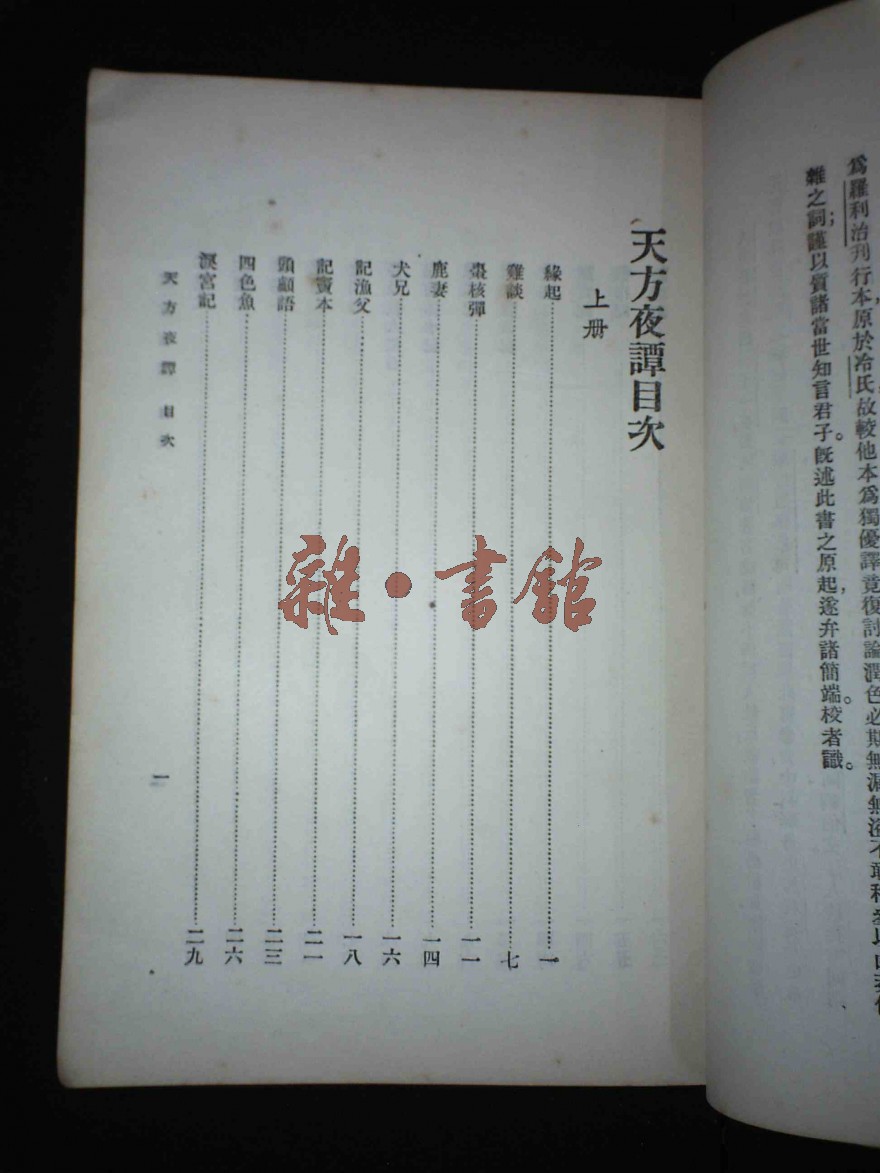 爲羅利治刊行本，原於冷氏故較他本爲獨優譯竟復討論潤色必期無漏無溢不敢
雜之詞；謹以質諸當世知言君子。旣述此書之原起，遂弁諸簡端。校者識。
天方夜譚目次
上册
緣起……一
雞談……七
棗核彈……一一
鹿妻……一四
犬兄……一六
記漁父……一八
記竇本……二一
頭顱語……二三
四色魚……二六
淚宮記……二九
天方夜譚 目次
一
雜·書館